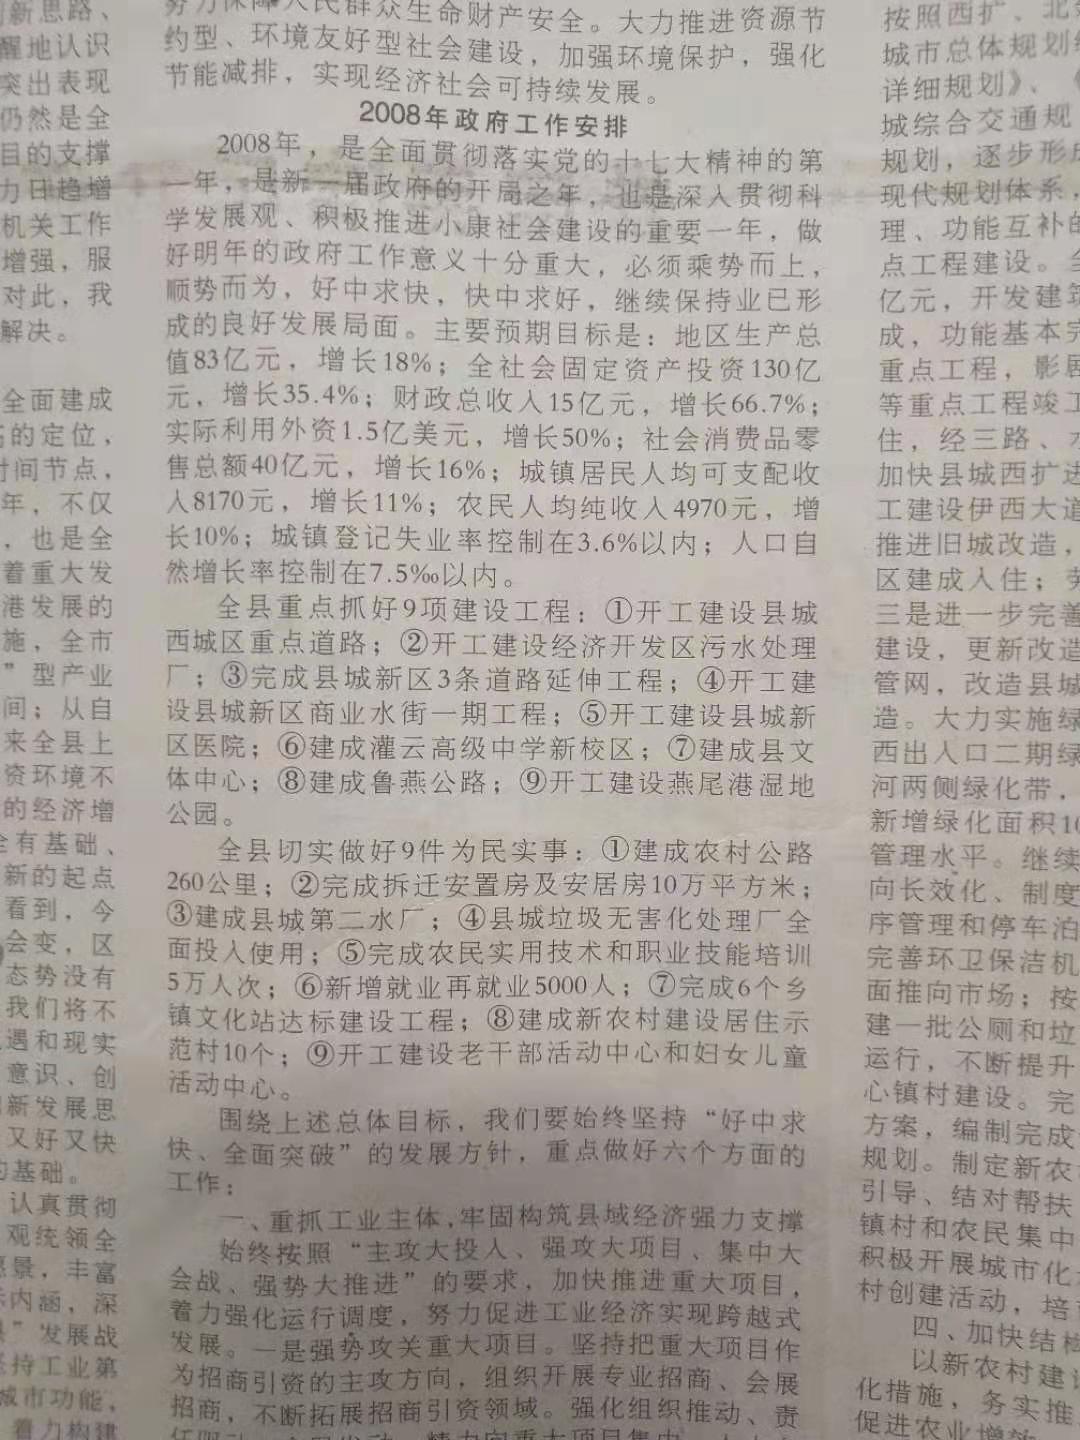 新思路、
醒地认识
突出表现
仍然是全
目的支撑
力日趋增
机关工作
增强，服
对此，我
解决。
全面建成
高的定位，
时间节点，
年，不仅
，也是全
着重大发
港发展的
施，全市
”型产业
间；从自
来全县上
资环境不
的经济增
全有基础、
新的起点
看到，今
会变，区
态势没有
我们将不
遇和现实
意识、创
新发展思
又好又快
的基础。
认真贯彻
观统领全
愿景，丰富
内涵，深
”发展战
坚持工业第
城市功能，
着力构建
努力保障人民群众生命财产安全。大力推进资源节
约型、环境友好型社会建设，加强环境保护，强化
节能减排，实现经济社会可持续发展。
2008年政府工作安排
2008年，是全面贯彻落实党的十七大精神的第
一年，是新一届政府的开局之年，也是深入贯彻科
学发展观、积极推进小康社会建设的重要一年，做
好明年的政府工作意义十分重大，必须乘势而上，
顺势而为，好中求快，快中求好，继续保持业已形
成的良好发展局面。主要预期目标是：地区生产总
值83亿元，增长18%；全社会固定资产投资130亿
元，增长35.4%；财政总收入15亿元，增长66.7%；
实际利用外资1.5亿美元，增长50%；社会消费品零
售总额40亿元，增长16%；城镇居民人均可支配收
入8170元，增长11%；农民人均纯收入4970元，增
长10%；城镇登记失业率控制在3.6%以内；人口自
然增长率控制在7.5‰以内。
全县重点抓好9项建设工程：①开工建设县城
西城区重点道路；②开工建设经济开发区污水处理
厂；③完成县城新区3条道路延伸工程；④开工建
设县城新区商业水街一期工程；⑤开工建设县城新
区医院；⑥建成灌云高级中学新校区；⑦建成县文
体中心；⑧建成鲁燕公路；⑨开工建设燕尾港湿地
公园。
全县切实做好9件为民实事：①建成农村公路
260公里；②完成拆迁安置房及安居房10万平方米；
③建成县城第二水厂；④县城垃圾无害化处理厂全
面投入使用；⑤完成农民实用技术和职业技能培训
5万人次；⑥新增就业再就业5000人；⑦完成6个乡
镇文化站达标建设工程；⑧建成新农村建设居住示
范村10个；⑨开工建设老干部活动中心和妇女儿童
活动中心。
围绕上述总体目标，我们要始终坚持“好中求
快、全面突破”的发展方针，重点做好六个方面的
工作：
一、重抓工业主体，牢固构筑县域经济强力支撑
始终按照“主攻大投入、强攻大项目、集中大
会战、强势大推进”的要求，加快推进重大项目，
着力强化运行调度，努力促进工业经济实现跨越式
发展。一是强势攻关重大项目。坚持把重大项目作
为招商引资的主攻方向，组织开展专业招商、会展
招商，不断拓展招商引资领域。强化组织推动、责
按照西扩、北
城市总体规划
详细规划》、《
城综合交通规
规划，逐步形成
现代规划体系，
理、功能互补的
点工程建设。全
亿元，开发建筑
成，功能基本完
重点工程，影剧
等重点工程竣工
住，经三路、水
加快县城西扩进
工建设伊西大道
推进旧城改造，
区建成入住；
三是进一步完善
建设，更新改造
管网，改造县城
造。大力实施绿
西出入口二期绿
河两侧绿化带，
新增绿化面积10
管理水平。继续
向长效化、制度
序管理和停车泊
完善环卫保洁机
面推向市场；按
建一批公厕和垃
运行，不断提升
心镇村建设。完
方案，编制完成
规划。制定新农
引导、结对帮扶
镇村和农民集中
积极开展城市化
村创建活动，培
四、加快结构
以新农村建设
化措施，务实推
促进农业增效